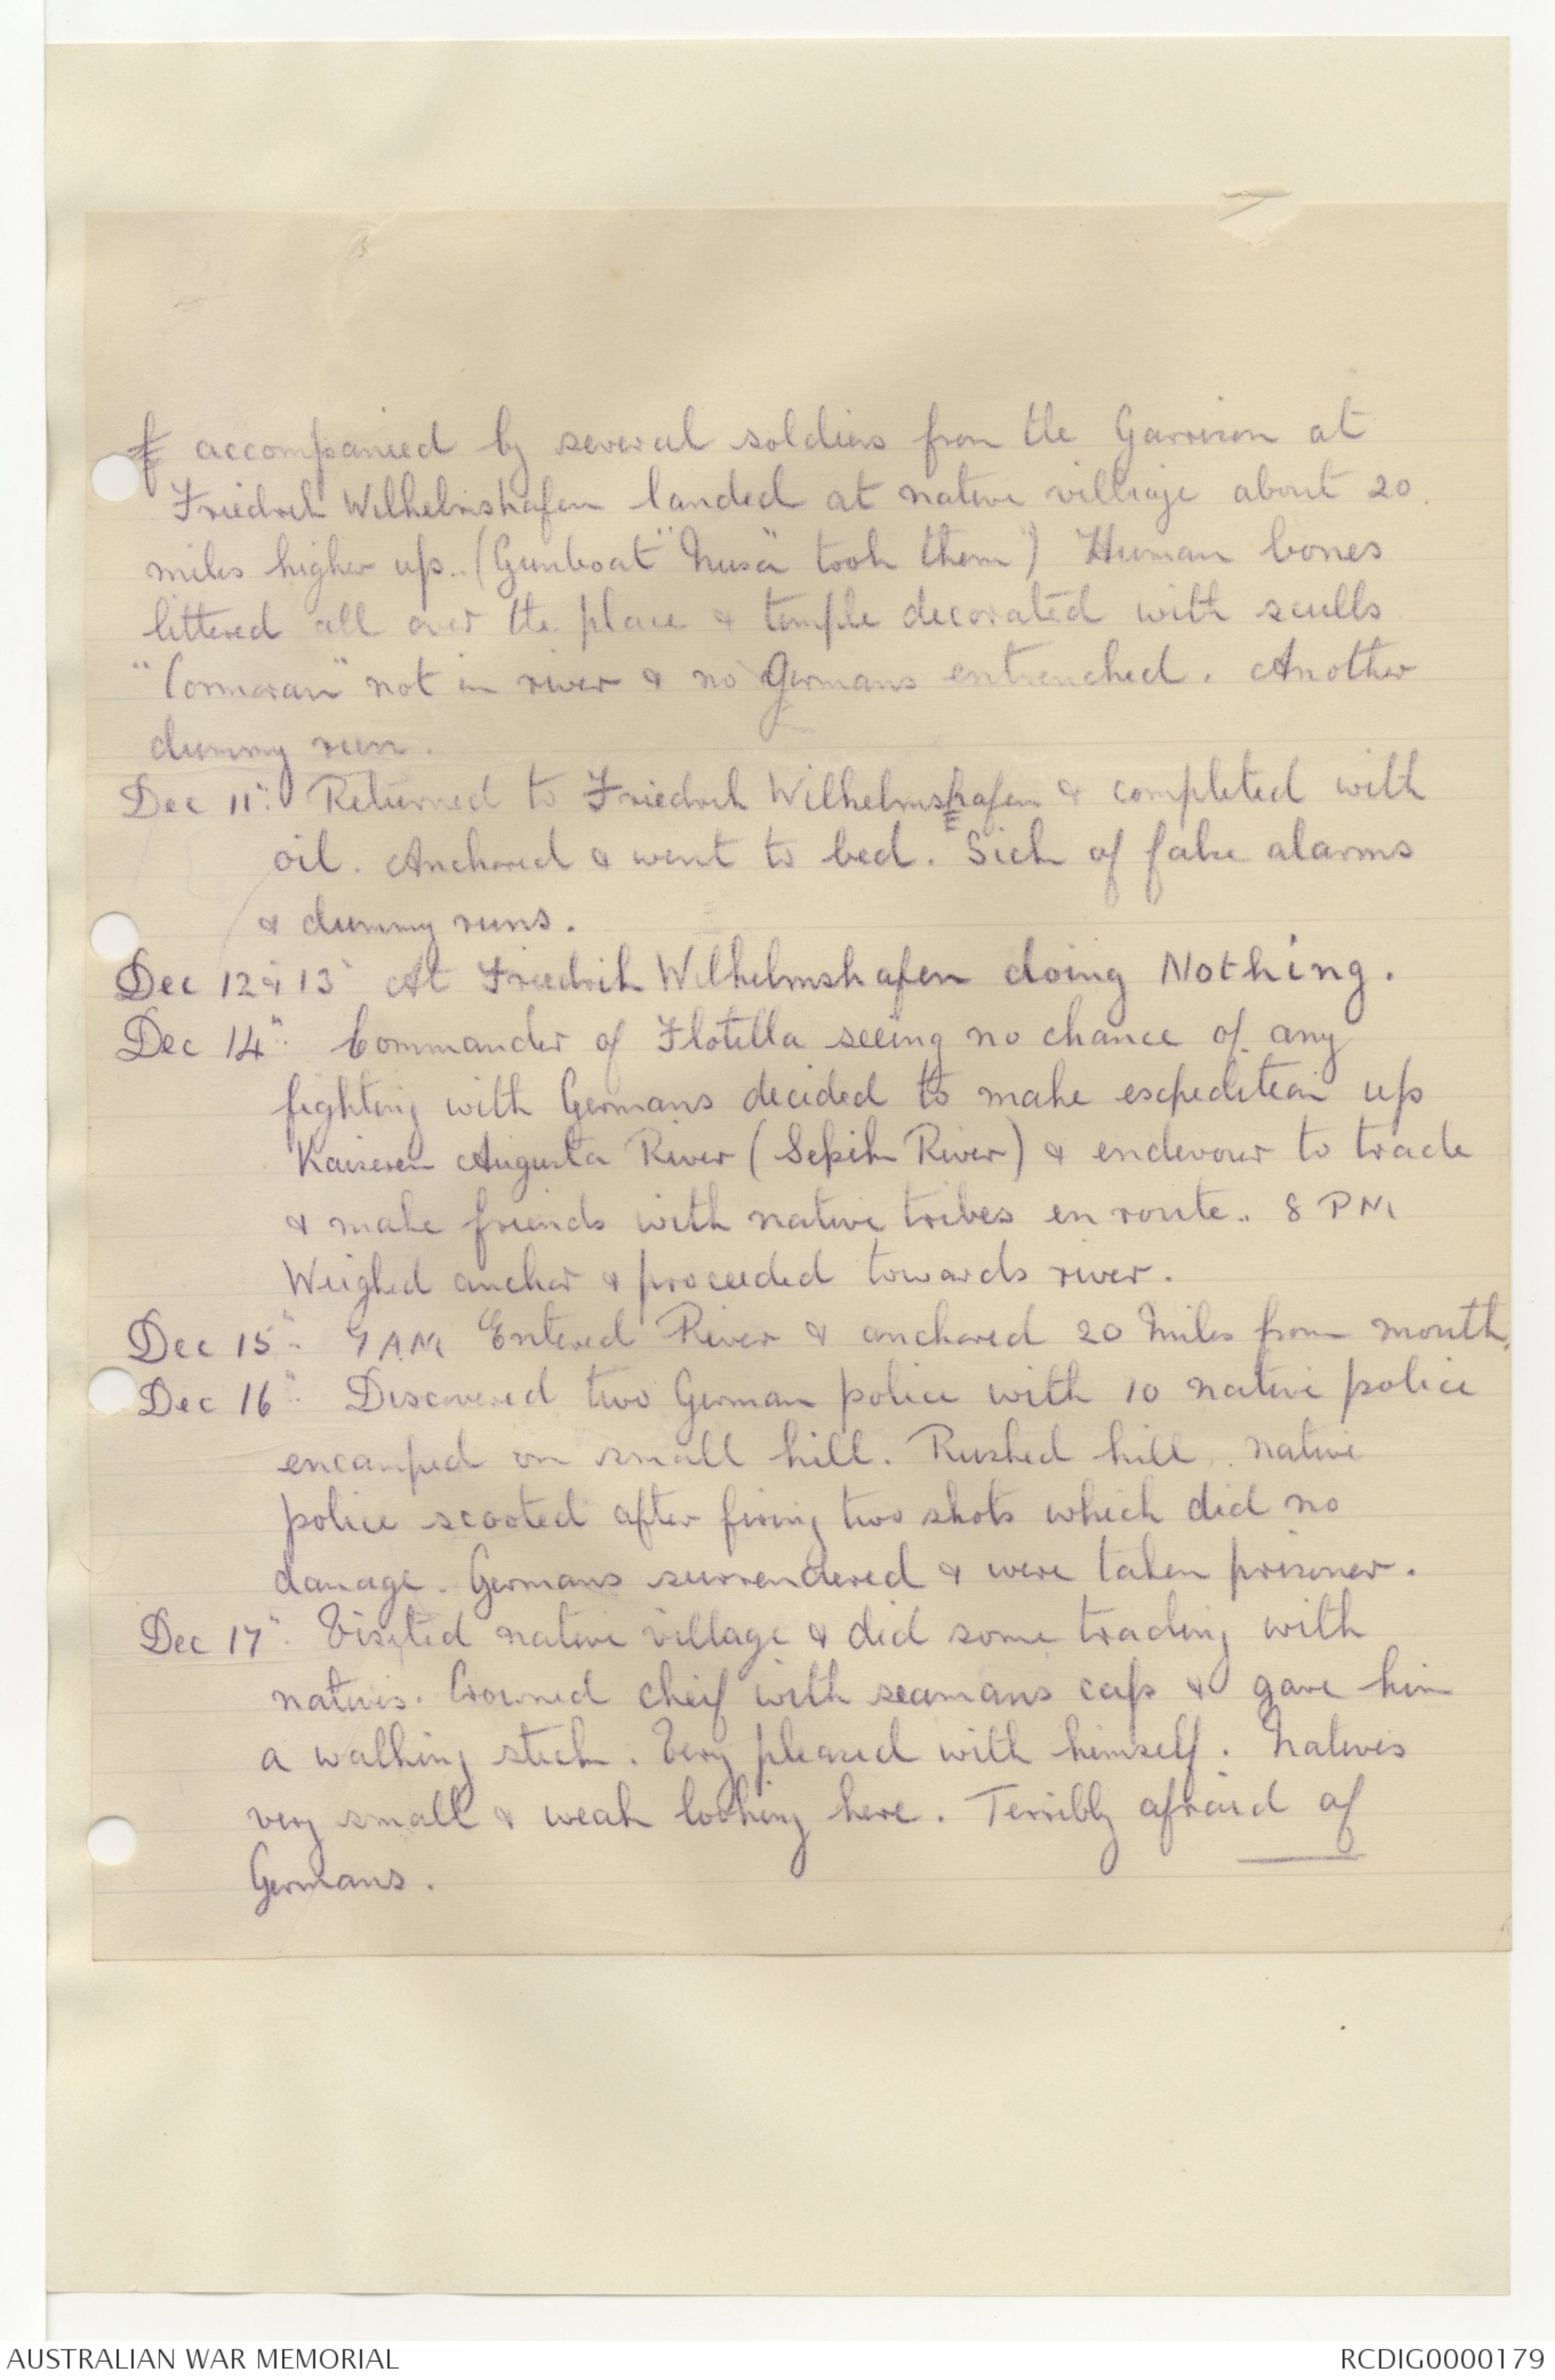 accompanied by several soldiers from the Garrison at
Friedrich Wilhelmshafen landed at native villiage about 20
miles higher up.. (Gunboat "Nusa" took them) Human bones
littered all over the place & temple decorated with sculls
"Cormoran" not in river & no Germans entrenched. Another
dummy run.
Dec 11". Returned to Friedrich Wilhelmshafen & completed with
oil. Anchored & went to bed. Sick of false alarms
& dummy runs.
Dec 12 & 13" At Friedrich Wilhelmshafen doing Nothing.
Dec 14". Commander of Flotilla seeing no chance of any
fighting with Germans decided to make expedition up
Kaiseren Augusta River (Sepik River) & endevour to trade
& make friends with native tribes en route.. 8 PM
Weighed anchor & proceeded towards river.
Dec 15". 7 AM Entered River & anchored 20 Miles from mouth.
Dec 16". Discovered two German police with 10 native police
encamped on small hill. Rushed hill. native
police scooted after firing two shots which did no
damage. Germans surrendered & were taken prisoner.
Dec 17". Visited native village & did some trading with
natives. Crowned cheif with seamans cap & gave him
a walking stick. Very pleased with himself. Natives
very small & weak looking here. Terribly afraid of
Germans.
AUSTRALIAN WAR MEMORIAL
RCDIG0000179